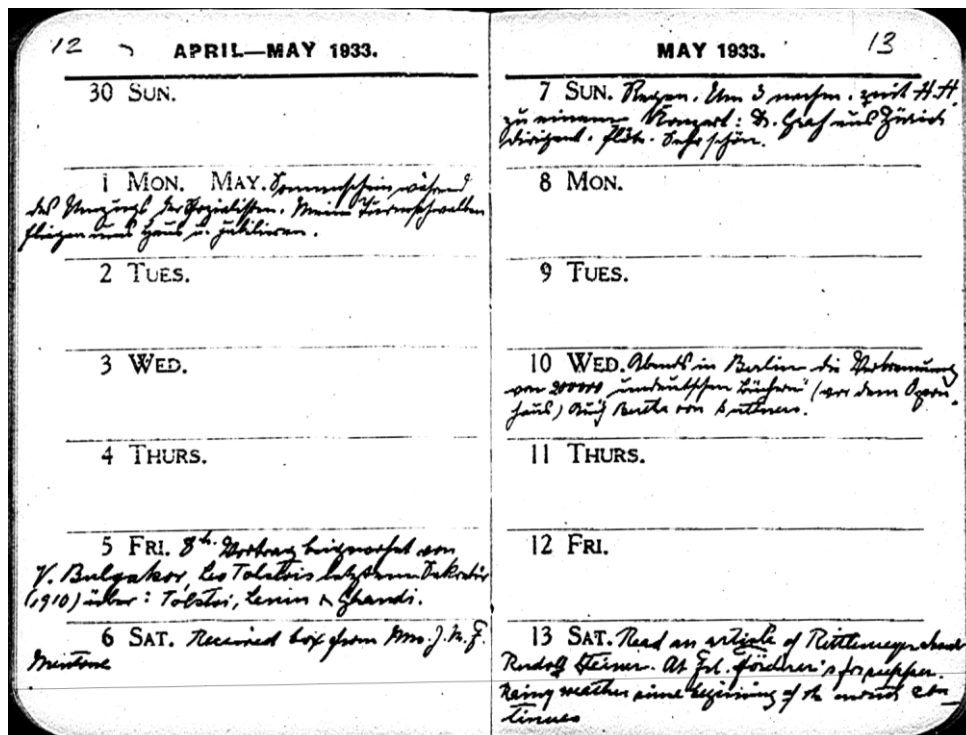 12
APRIL—MAY 1933.
30 SUN.
1 MON. MAY. Sonnenschein während
des Umzugs der Sozialisten. Meine Turmschwalben
fliegen ums Haus u. jubilieren.
2 TUES.
3 WED.
4 THURS.
5 FRI. 8h. Vortrag beigewohnt von
V. Bulgakov, Leo Tolstois letztem Sekretär
(1910) über: Tolstoi, Lenin & Ghandi.
6 SAT. Received box from Mrs. J. N. F.
Mentone
MAY 1933.
13
7 SUN. Regen. Um 3 nachm. mit H. H.
zu einem Konzert: Dr. Graf aus Zürich
dirigent. Flöte. Sehr schön.
8 MON.
9 TUES.
10 WED. Abends in Berlin die Verbrennung
von 20000 "undeutschen Büchern" (vor dem Opern-
haus) Auch Bertha von Suttners.
11 THURS.
12 FRI.
13 SAT. Read an article of Rittlemeyer about
Rudolf Steiner. At Frl. 's for supper.
Rainy weather since beginning of the month con-
tinues